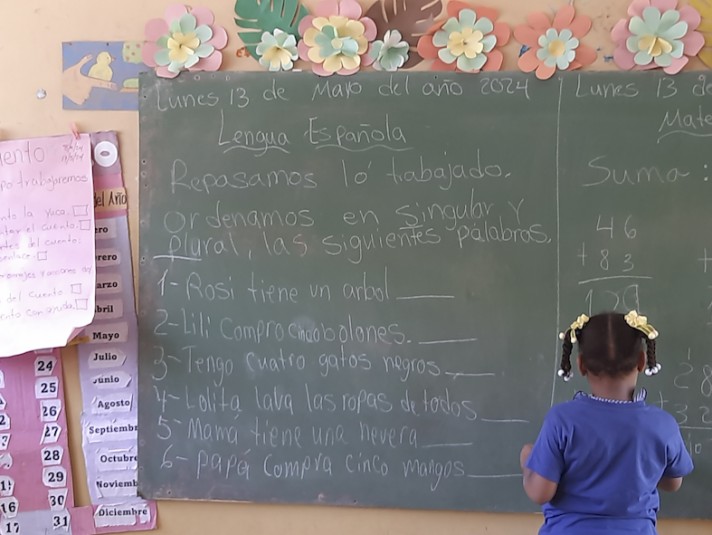 Lunes 13 de Mayo del año 2024
Lengua Española
Repasamos lo trabajado.
ordenamos en singular y
plural, las siguientes palabras.
1- Rosi tiene un arbol
2- Lili Compro cinco bolones.
3- Tengo cuatro gatos negros
4- Lolita laba las ropas de todos
5- Mamá tiene una nevera
6- Papá Compra Cinco mangos
Lunes 13 de
Mate
Suma:
46
+ 83
129
28
32
la yuca.
del cuento
del Año
Mayo
Julio
Junio
Agosto
Septiembre
Octubre
Noviemb
Diciembre
24
25
26
27
28
29
30
31
16
17